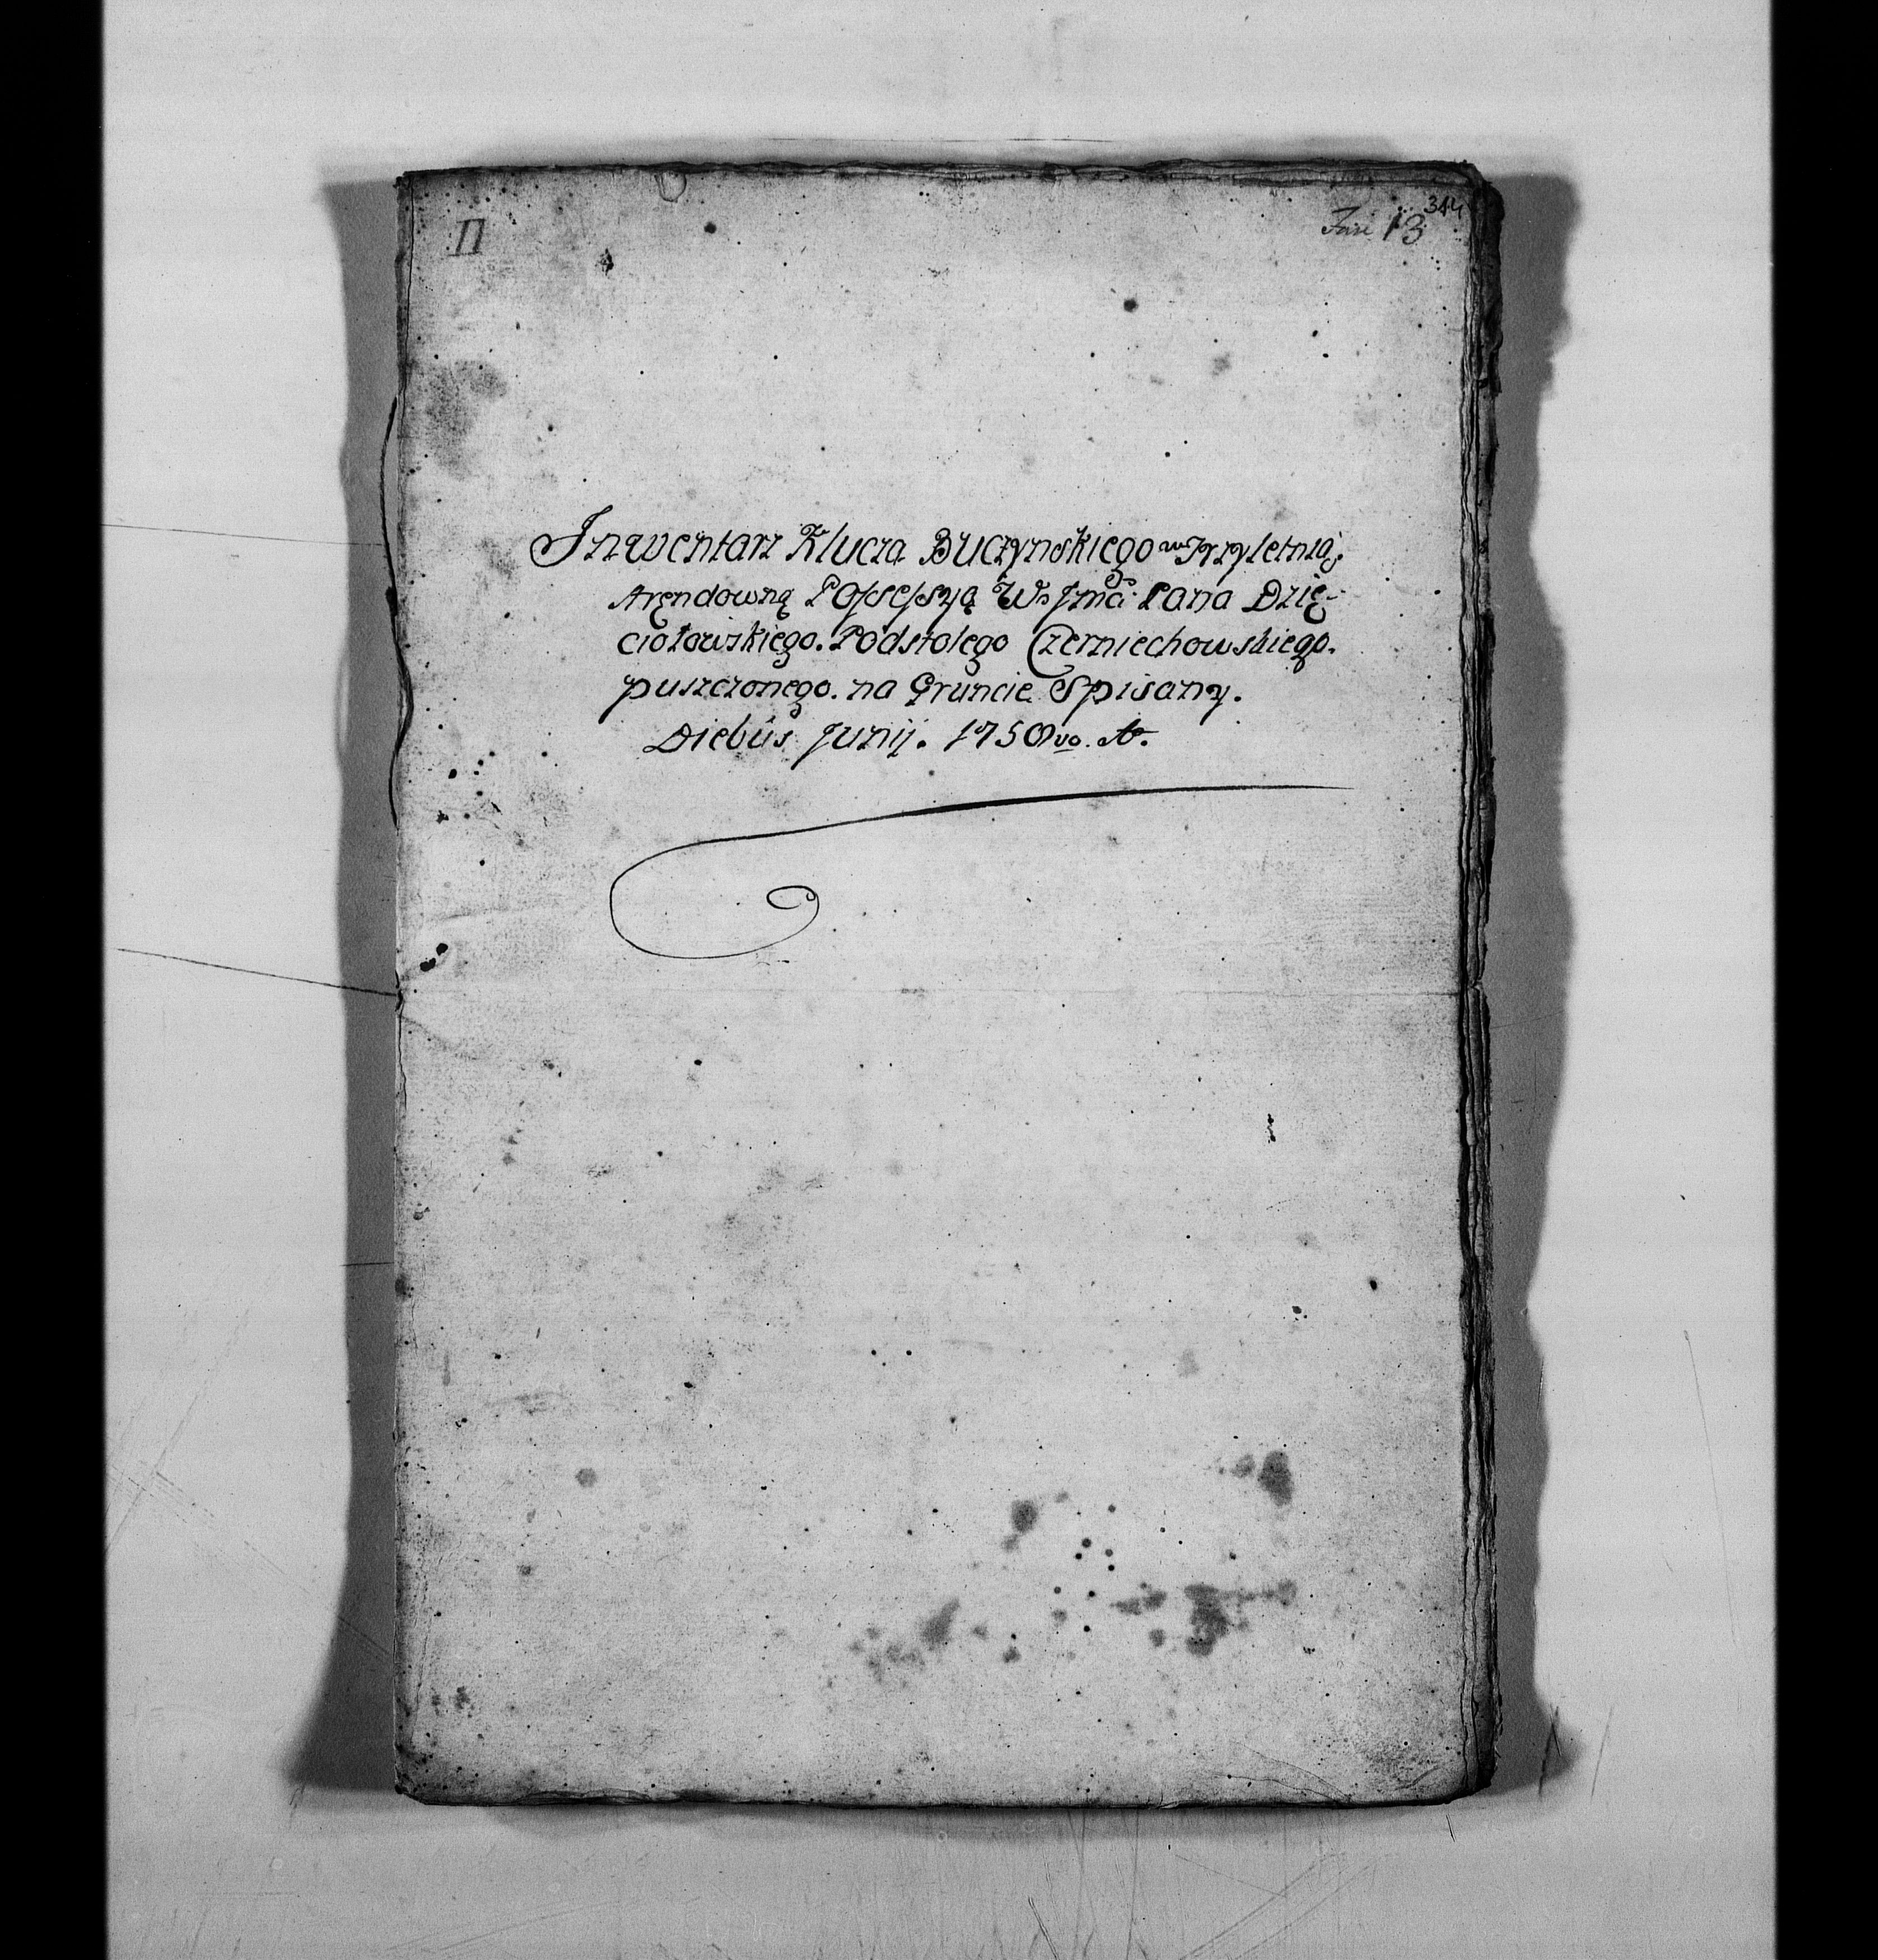 II
344
Fasc 13
Inwentarz Klucza Buczynskiego w Trzyletnią
Aręndowną Possessyą Wo Jmci Pana Dzię-
ciołowskiego. Podstolego Czerniechowskiego.
puszczonego. na Gruncie Spisany.
Diebus Junij. 1758vo. A.